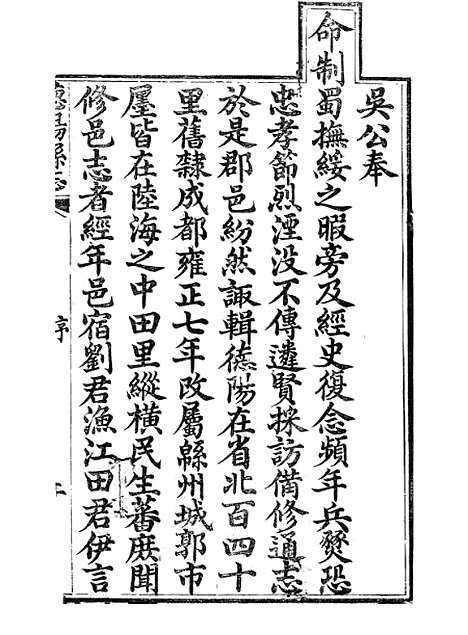 吳公奉
命制蜀撫綏之暇旁及經史復念頻年兵燹恐
忠孝節烈湮没不傳遴賢採訪備修通志
於是郡邑紛然諏輯德陽在省北百四十
里舊隸成都雍正七年改屬緜州城郭市
廛皆在陸海之中田里縱橫民生蕃庶聞
修邑志者經年邑宿劉君漁江田君伊言
德陽縣志
序